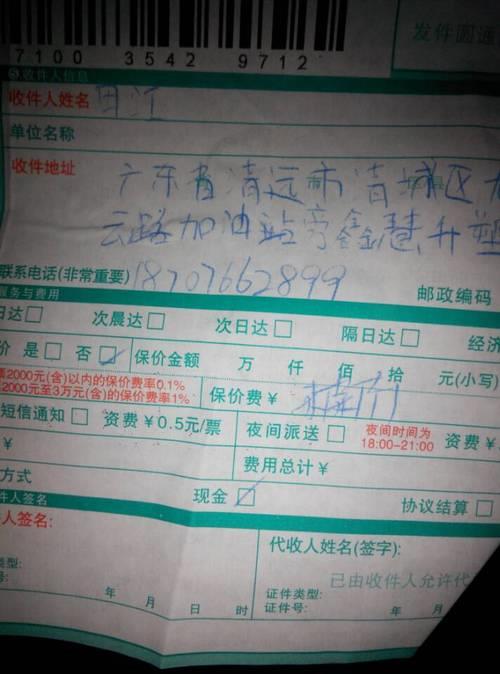 7100 3542 9712
发件圆通
收件人信息
收件人姓名 田江
单位名称
收件地址 广东省清远市清城区
云路加油站旁鑫慧升塑
联系电话(非常重要) 18707662899 邮政编码
服务与费用
日达 次晨达 次日达 隔日达 经济
价 是 否 保价金额 万 仟 佰 拾 元(小写)
票2000元(含)以内的保价费率0.1%
2000元至3万元(含)的保价费率1%
保价费¥
短信通知 资费¥0.5元/票 夜间派送 夜间时间为
18:00-21:00 资费¥
¥ 费用总计¥
方式 现金 协议结算
件人签名
人签名: 代收人姓名(签字):
已由收件人允许代
类型: 证件类型:
号: 证件号:
年 月 日 时 年 月